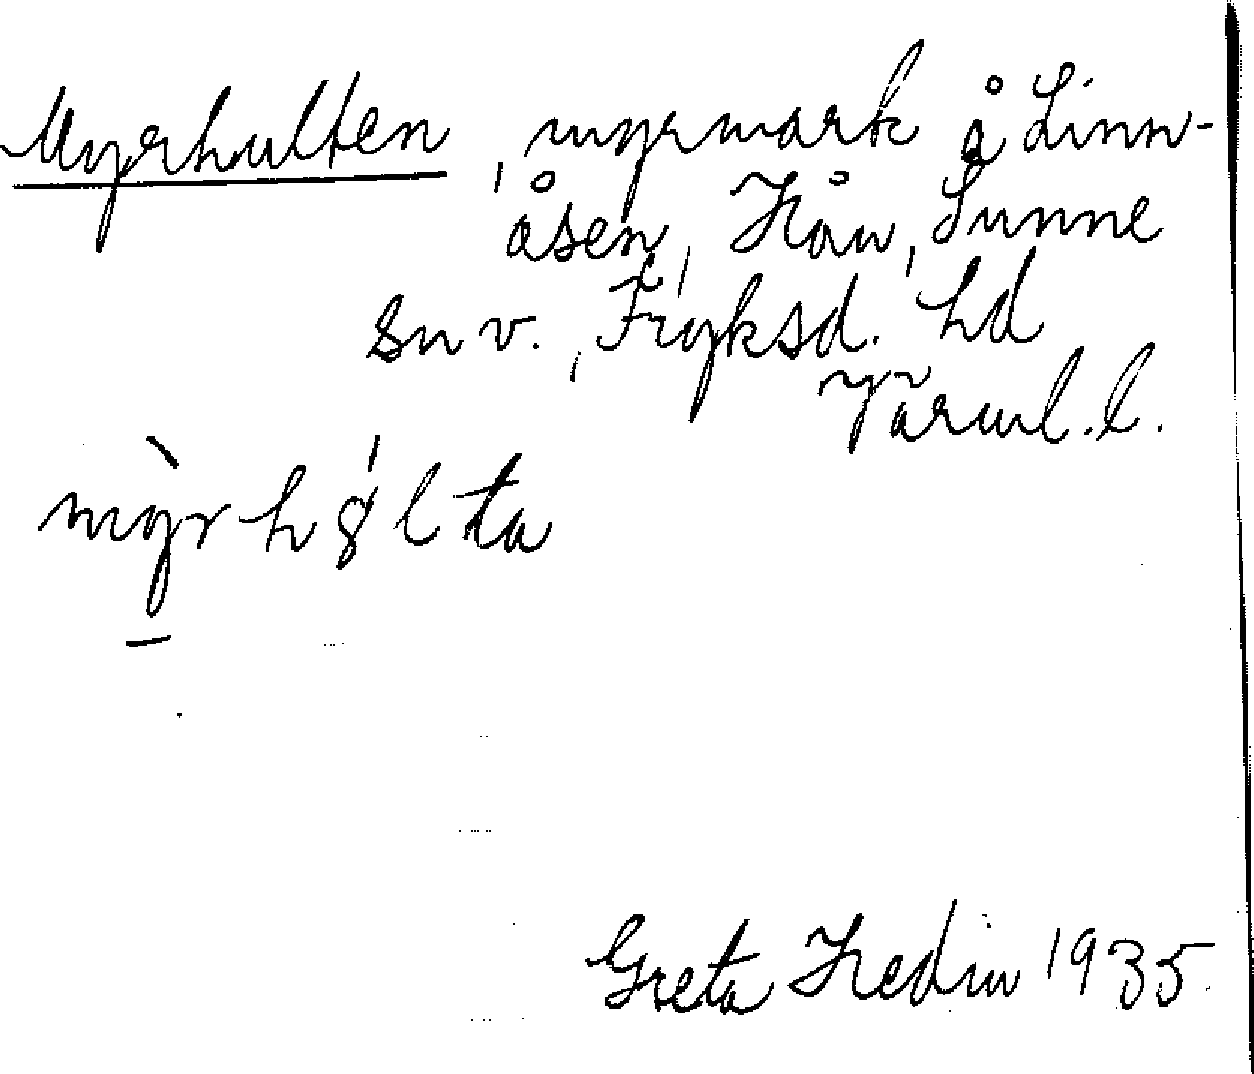 Myrhulten, myrmark å Linn-
åsen, Hån, Sunne
sn v., Fryksd. hd
Värml. l.
mỳrh 8́lta
Greta Hedin 1935.